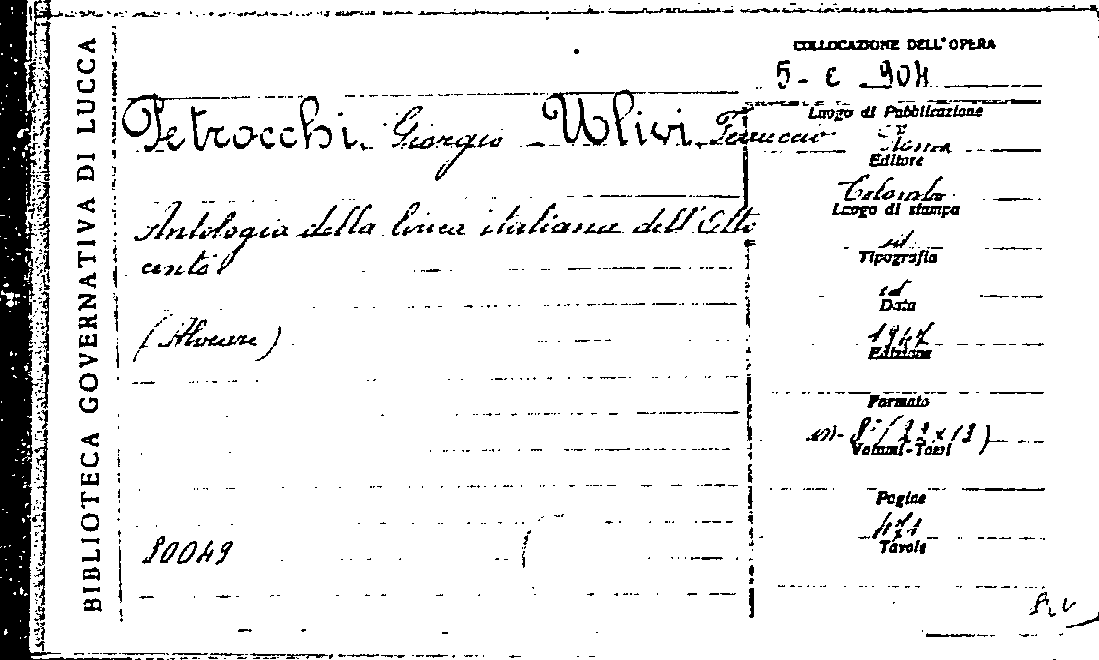 BIBLIOTECA GOVERNATIVA DI LUCCA
COLLOCAZIONE DELL'OPERA
5 - E 904
Petrocchi Giorgio - Ulivi Ferruccio
Antologia della lirica italiana dell'Otto
cento
(Alveare)
80049
Luogo di Pubblicazione
Roma
Editore
Colombo
Luogo di stampa
id
Tipografia
id
Data
1947
Edizione
Formato
in- 8° (22 x 13)
Volumi-Tomi
Pagine
471
Tavole